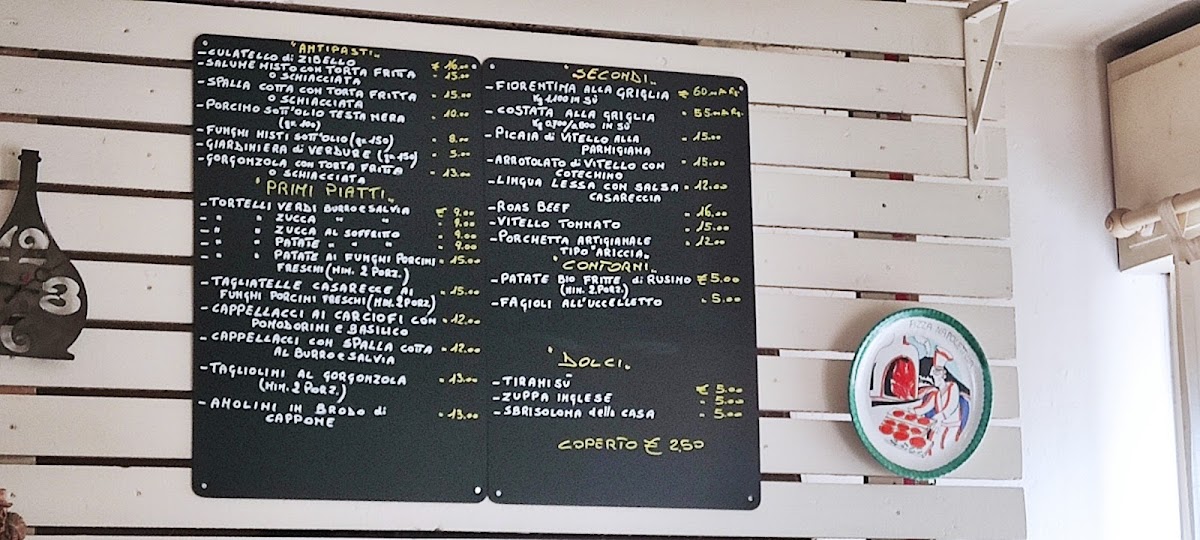 "ANTIPASTI"
- CULATELLO di ZIBELLO € 16.00
- SALUME MISTO CON TORTA FRITTA " 15.00
O SCHIACCIATA
- SPALLA COTTA CON TORTA FRITTA " 15.00
O SCHIACCIATA
- PORCINO SOTT'OLIO TESTA NERA " 10.00
(gr 100)
- FUNGHI MISTI SOTT'OLIO (gr 150) " 8.00
- GIARDINIERA di VERDURE (gr 150) " 5.00
- GORGONZOLA CON TORTA FRITTA " 13.00
O SCHIACCIATA
"PRIMI PIATTI"
- TORTELLI VERDI BURRO e SALVIA € 9.00
- " " ZUCCA " " " 9.00
- " " ZUCCA AL SOFFRITTO " 9.00
- " " PATATE " " " 9.00
- " " PATATE AI FUNGHI PORCINI " 15.00
FRESCHI (MIN. 2 PORZ.)
- TAGLIATELLE CASARECCE AI " 15.00
FUNGHI PORCINI FRESCHI (MIN. 2 PORZ)
- CAPPELLACCI AI CARCIOFI CON " 12.00
POMODORINI E BASILICO
- CAPPELLACCI CON SPALLA COTTA " 12.00
AL BURRO e SALVIA
- TAGLIOLINI AL GORGONZOLA " 13.00
(MIN. 2 PORZ.)
- ANOLINI IN BRODO di " 13.00
CAPPONE
"SECONDI"
- FIORENTINA ALLA GRIGLIA € 60.00 AL Kg.
Kg 1.100 IN SÙ
- COSTATA ALLA GRIGLIA " 55.00 AL Kg.
Kg 0,700/0,800 IN SÙ
- PICAIA di VITELLO ALLA " 15.00
PARMIGIANA
- ARROTOLATO di VITELLO CON " 15.00
COTECHINO
- LINGUA LESSA CON SALSA " 12.00
CASARECCIA
- ROAS BEEF " 16.00
- VITELLO TONNATO " 15.00
- PORCHETTA ARTIGIANALE " 12.00
TIPO "ARICCIA"
"CONTORNI"
- PATATE BIO FRITTE di RUSINO € 5.00
(MIN. 2 PORZ.)
- FAGIOLI ALL'UCCELLETTO " 5.00
"DOLCI"
- TIRAMISÙ € 5.00
- ZUPPA INGLESE " 5.00
- SBRISOLONA della CASA " 5.00
COPERTO € 2,50
PIZZA NAPOLETANA